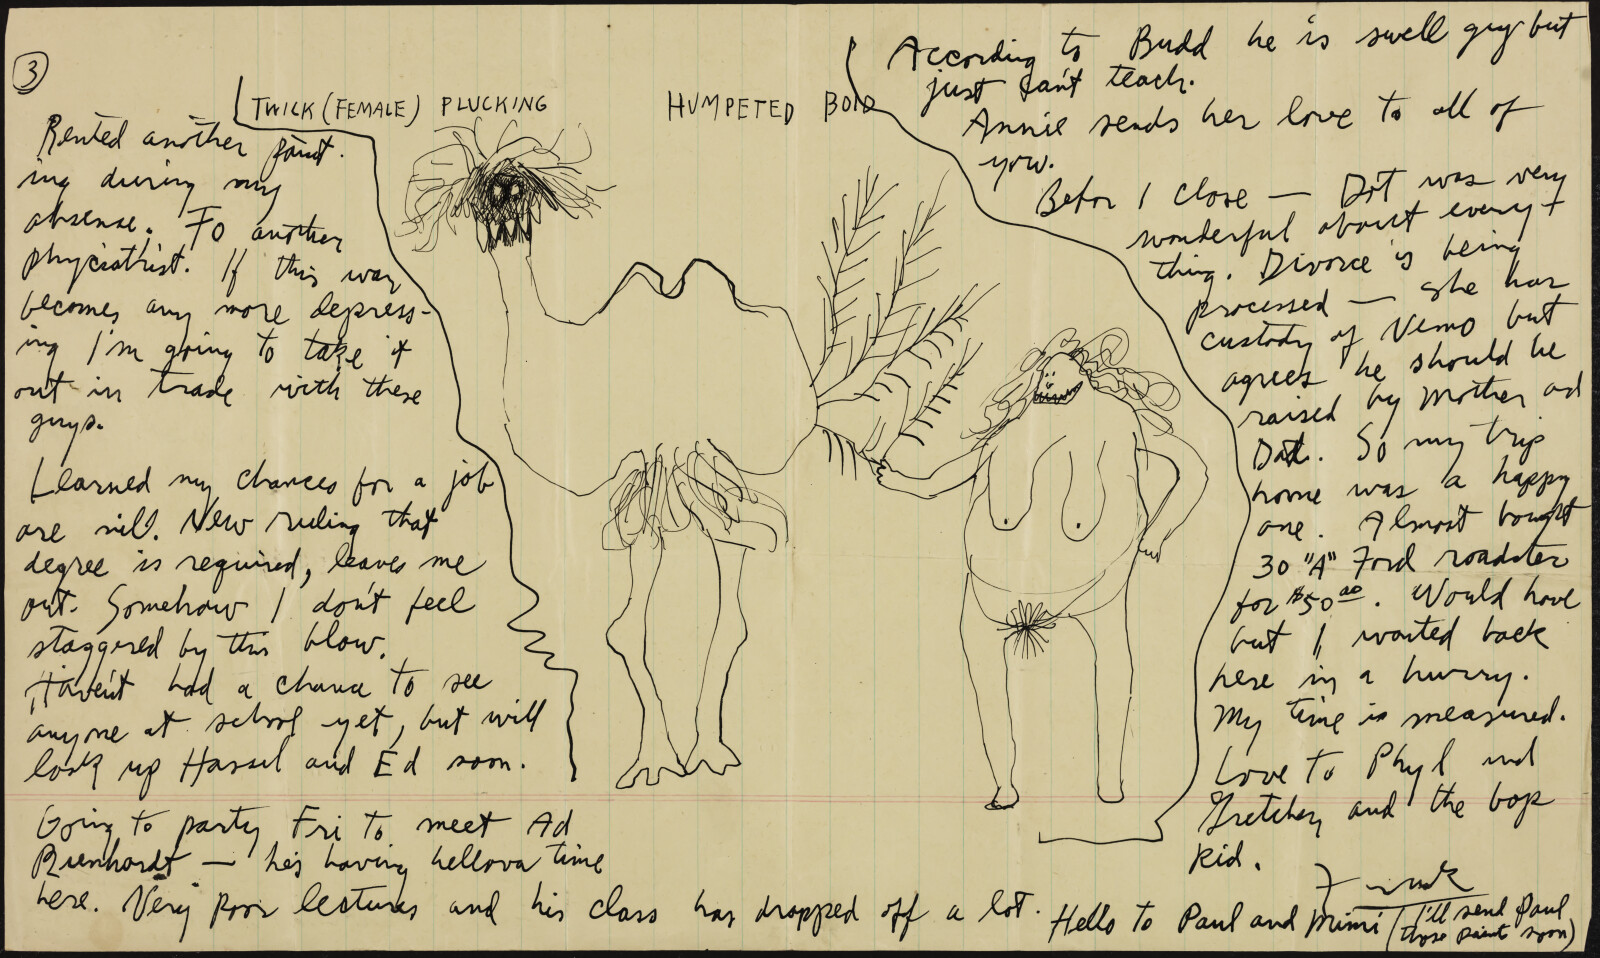 3
TWICK (FEMALE) PLUCKING HUMPETED BOID
Rented another paint-
ing during my
absense. To another
phyciathist. If this way
becomes any more depress-
ing I'm going to take it
out in trade with these
guys.
Learned my chances for a job
are nill. New ruling that
degree is required, leaves me
out. Somehow I don't feel
staggered by this blow.
Haven't had a chance to see
anyone at school yet, but will
look up Hassel and Ed soon.
Going to party Fri to meet Ad
Rienhardt — he's having hellova time
here. Very poor lectures and his class has dropped off a lot.
According to Budd he is swell guy but
just can't teach.
Annie sends her love to all of
you.
Before I close — Dot was very
wonderful about every-
thing. Divorce is being
processed — she has
custody of Nemo but
agrees he should be
raised by Mother and
Dad. So my trip
home was a happy
one. Almost bought
30 "A" Ford roadster
for $50.00. Would have
but I wanted back
here in a hurry.
My time is measured.
Love to Phyl and
Gretchen and the bop
kid.
Hello to Paul and Mimi (I'll send Paul
those paints soon)